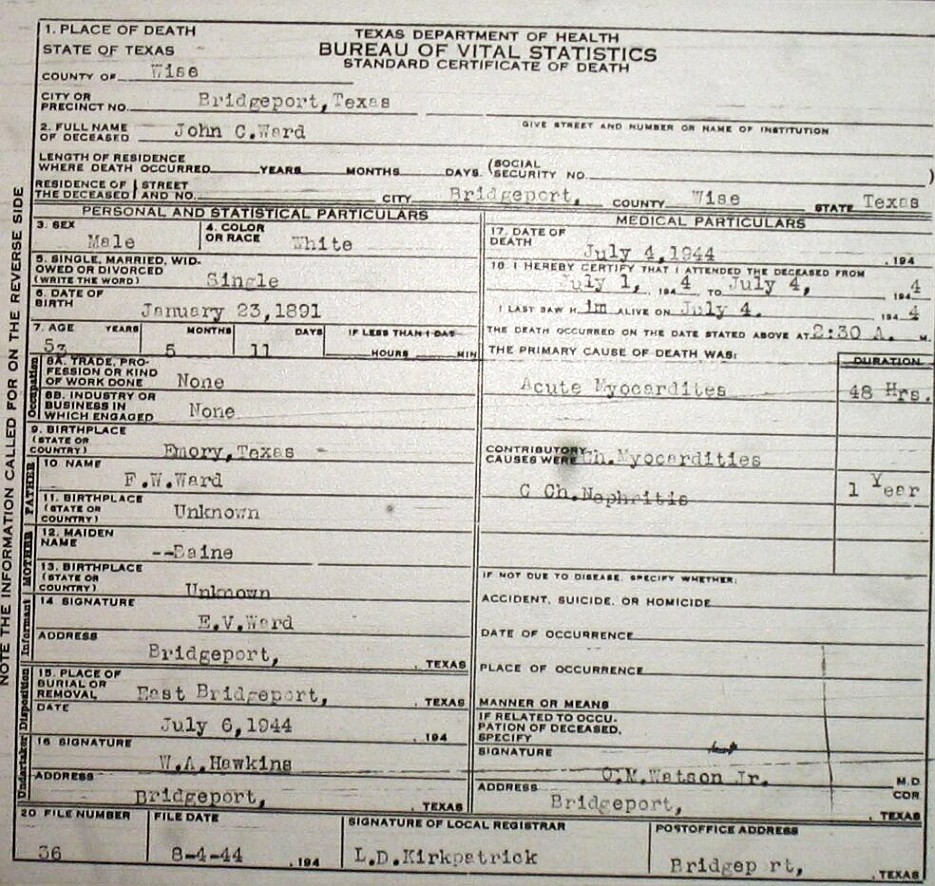 TEXAS DEPARTMENT OF HEALTH
BUREAU OF VITAL STATISTICS
STANDARD CERTIFICATE OF DEATH
NOTE THE INFORMATION CALLED FOR ON THE REVERSE SIDE
1. PLACE OF DEATH
STATE OF TEXAS
COUNTY OF Wise
CITY OR PRECINCT NO. Bridgeport, Texas
GIVE STREET AND NUMBER OR NAME OF INSTITUTION
2. FULL NAME OF DECEASED John C. Ward
LENGTH OF RESIDENCE WHERE DEATH OCCURRED YEARS MONTHS DAYS. (SOCIAL SECURITY NO. )
RESIDENCE OF THE DECEASED STREET AND NO. CITY Bridgeport, COUNTY Wise STATE Texas
PERSONAL AND STATISTICAL PARTICULARS
3. SEX Male 4. COLOR OR RACE White
5. SINGLE, MARRIED, WIDOWED OR DIVORCED (WRITE THE WORD) Single
6. DATE OF BIRTH January 23, 1891
7. AGE YEARS MONTHS DAYS IF LESS THAN 1 DAY
53 5 11 HOURS MIN
Occupation
8A. TRADE, PROFESSION OR KIND OF WORK DONE None
8B. INDUSTRY OR BUSINESS IN WHICH ENGAGED None
9. BIRTHPLACE (STATE OR COUNTRY) Emory, Texas
FATHER
10 NAME F.W.Ward
11. BIRTHPLACE (STATE OR COUNTRY) Unknown
MOTHER
12. MAIDEN NAME --Baine
13. BIRTHPLACE (STATE OR COUNTRY) Unknown
Informant
14 SIGNATURE E.V.Ward
ADDRESS Bridgeport, , TEXAS
Disposition
15. PLACE OF BURIAL OR REMOVAL East Bridgeport, , TEXAS
DATE July 6, 1944 , 194
Undertaker
16 SIGNATURE W.A.Hawkins
ADDRESS Bridgeport, , TEXAS
MEDICAL PARTICULARS
17. DATE OF DEATH July 4, 1944 , 194
18. I HEREBY CERTIFY THAT I ATTENDED THE DECEASED FROM
July 1, , 194 4 TO July 4, 194 4
I LAST SAW H im ALIVE ON July 4. 194 4
THE DEATH OCCURRED ON THE DATE STATED ABOVE AT 2:30 A. M.
THE PRIMARY CAUSE OF DEATH WAS: DURATION
Acute Myocardites 48 Hrs.
CONTRIBUTORY CAUSES WERE Ch. Myocardities
C Ch. Nephritis 1 Year
IF NOT DUE TO DISEASE, SPECIFY WHETHER:
ACCIDENT, SUICIDE, OR HOMICIDE
DATE OF OCCURRENCE
PLACE OF OCCURRENCE
MANNER OR MEANS
IF RELATED TO OCCUPATION OF DECEASED, SPECIFY
SIGNATURE O.M.Watson Jr. M.D
ADDRESS COR
Bridgeport, , TEXAS
20 FILE NUMBER FILE DATE SIGNATURE OF LOCAL REGISTRAR POSTOFFICE ADDRESS
36 8-4-44 , 194 L.D.Kirkpatrick Bridgep rt, , TEXAS